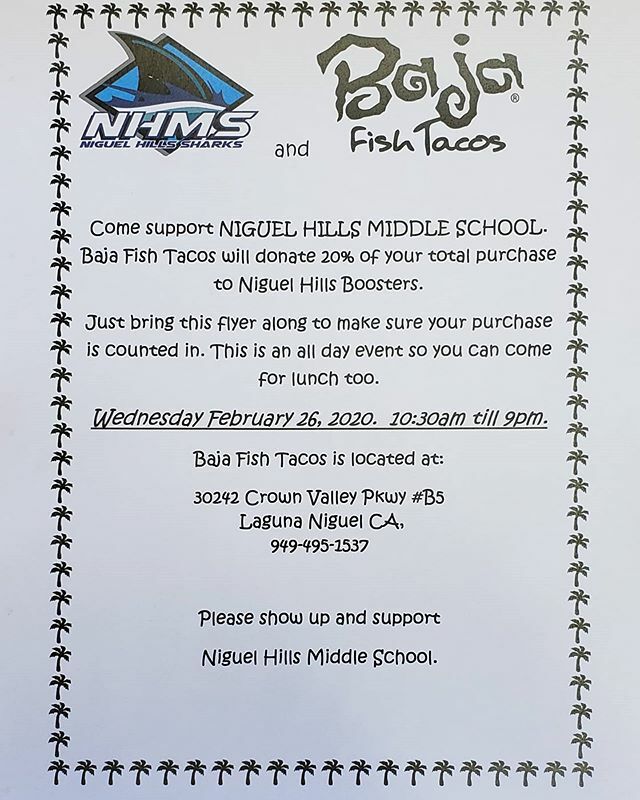 NHMS
NIGUEL HILLS SHARKS
and
Baja®
Fish Tacos
Come support NIGUEL HILLS MIDDLE SCHOOL.
Baja Fish Tacos will donate 20% of your total purchase
to Niguel Hills Boosters.
Just bring this flyer along to make sure your purchase
is counted in. This is an all day event so you can come
for lunch too.
Wednesday February 26, 2020. 10:30am till 9pm.
Baja Fish Tacos is located at:
30242 Crown Valley Pkwy #B5
Laguna Niguel CA,
949-495-1537
Please show up and support
Niguel Hills Middle School.